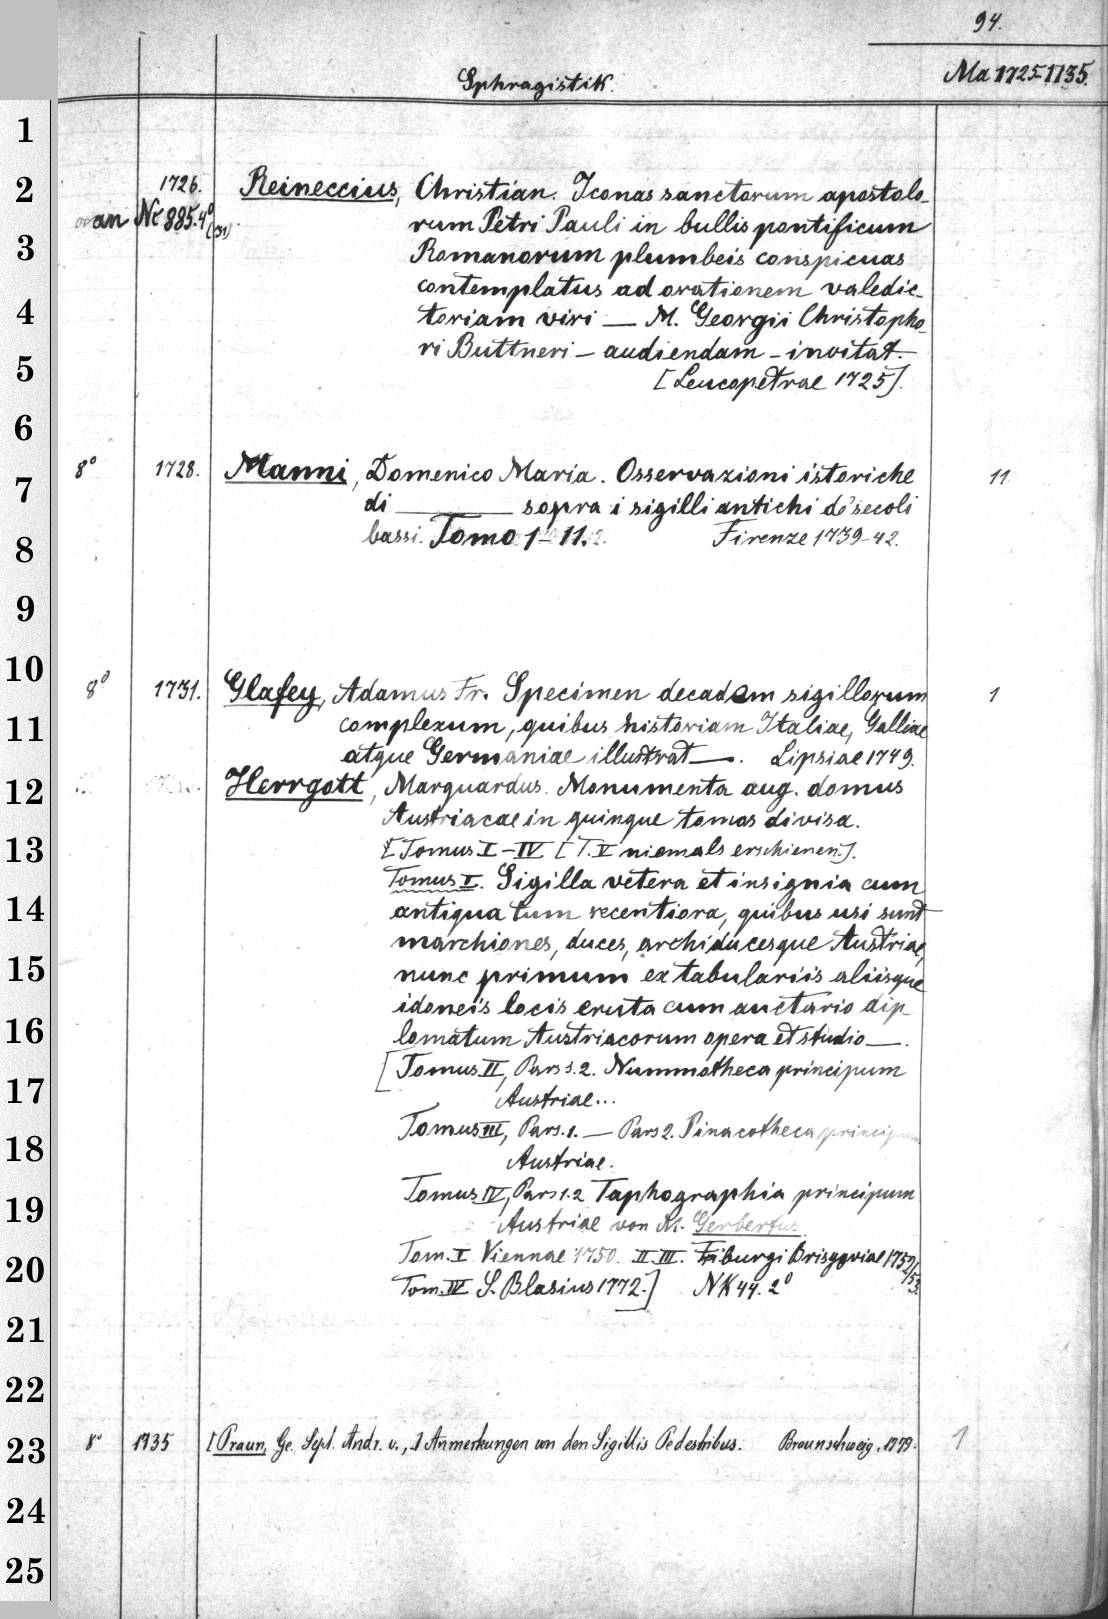 94.
Sphragistik.
Ma 1725-1735.
1
2
3
4
5
6
7
8
9
10
11
12
13
14
15
16
17
18
19
20
21
22
23
24
25
1726. Reineccius, Christian. Iconas sanctorum apostolo-
an Nc 885.4° (31) rum Petri Pauli in bullis pontificum
Romanorum plumbeis conspicuas
contemplatus ad orationem valedic-
toriam viri — M. Georgii Christopho-
ri Buttneri – audiendam – invitat. –
[Leucopetrae 1725].
8° 1728. Manni, Domenico Maria. Osservazioni istoriche 11
di ——— sopra i sigilli antichi de' secoli
bassi. Tomo 1-11. Firenze 1739-42.
8° 1731. Glafey, Adamus Fr. Specimen decadem sigillorum 1
complexum, quibus historiam Italiae, Galliae
atque Germaniae illustrat —. Lipsiae 1749.
Herrgott, Marquardus. Monumenta aug. domus
Austriacae in quinque tomos divisa.
[Tomus I-IV [T. V niemals erschienen.].
Tomus I. Sigilla vetera et insignia cum
antiqua tum recentiora, quibus usi sunt
marchiones, duces, archiducesque Austriae,
nunc primum ex tabulariis aliisque
idoneis locis eruta cum auctario dip-
lomatum Austriacorum opera et studio —.
[Tomus II, Pars 1.2. Nummotheca principum
Austriae...
Tomus III, Pars. 1. — Pars 2. Pinacotheca principum
Austriae.
Tomus IV, Pars 1.2 Taphographia principum
Austriae von M. Gerbertus.
Tom. I Viennae 1750. II. III. Friburgi Brisgoviae 1752/53.
Tom. IV S. Blasius 1772.] NK 44. 2°
8° 1735 [Praun, Ge. Sept. Andr. v.,] Anmerkungen von den Sigillis Pedestribus. Braunschweig, 1779. 1